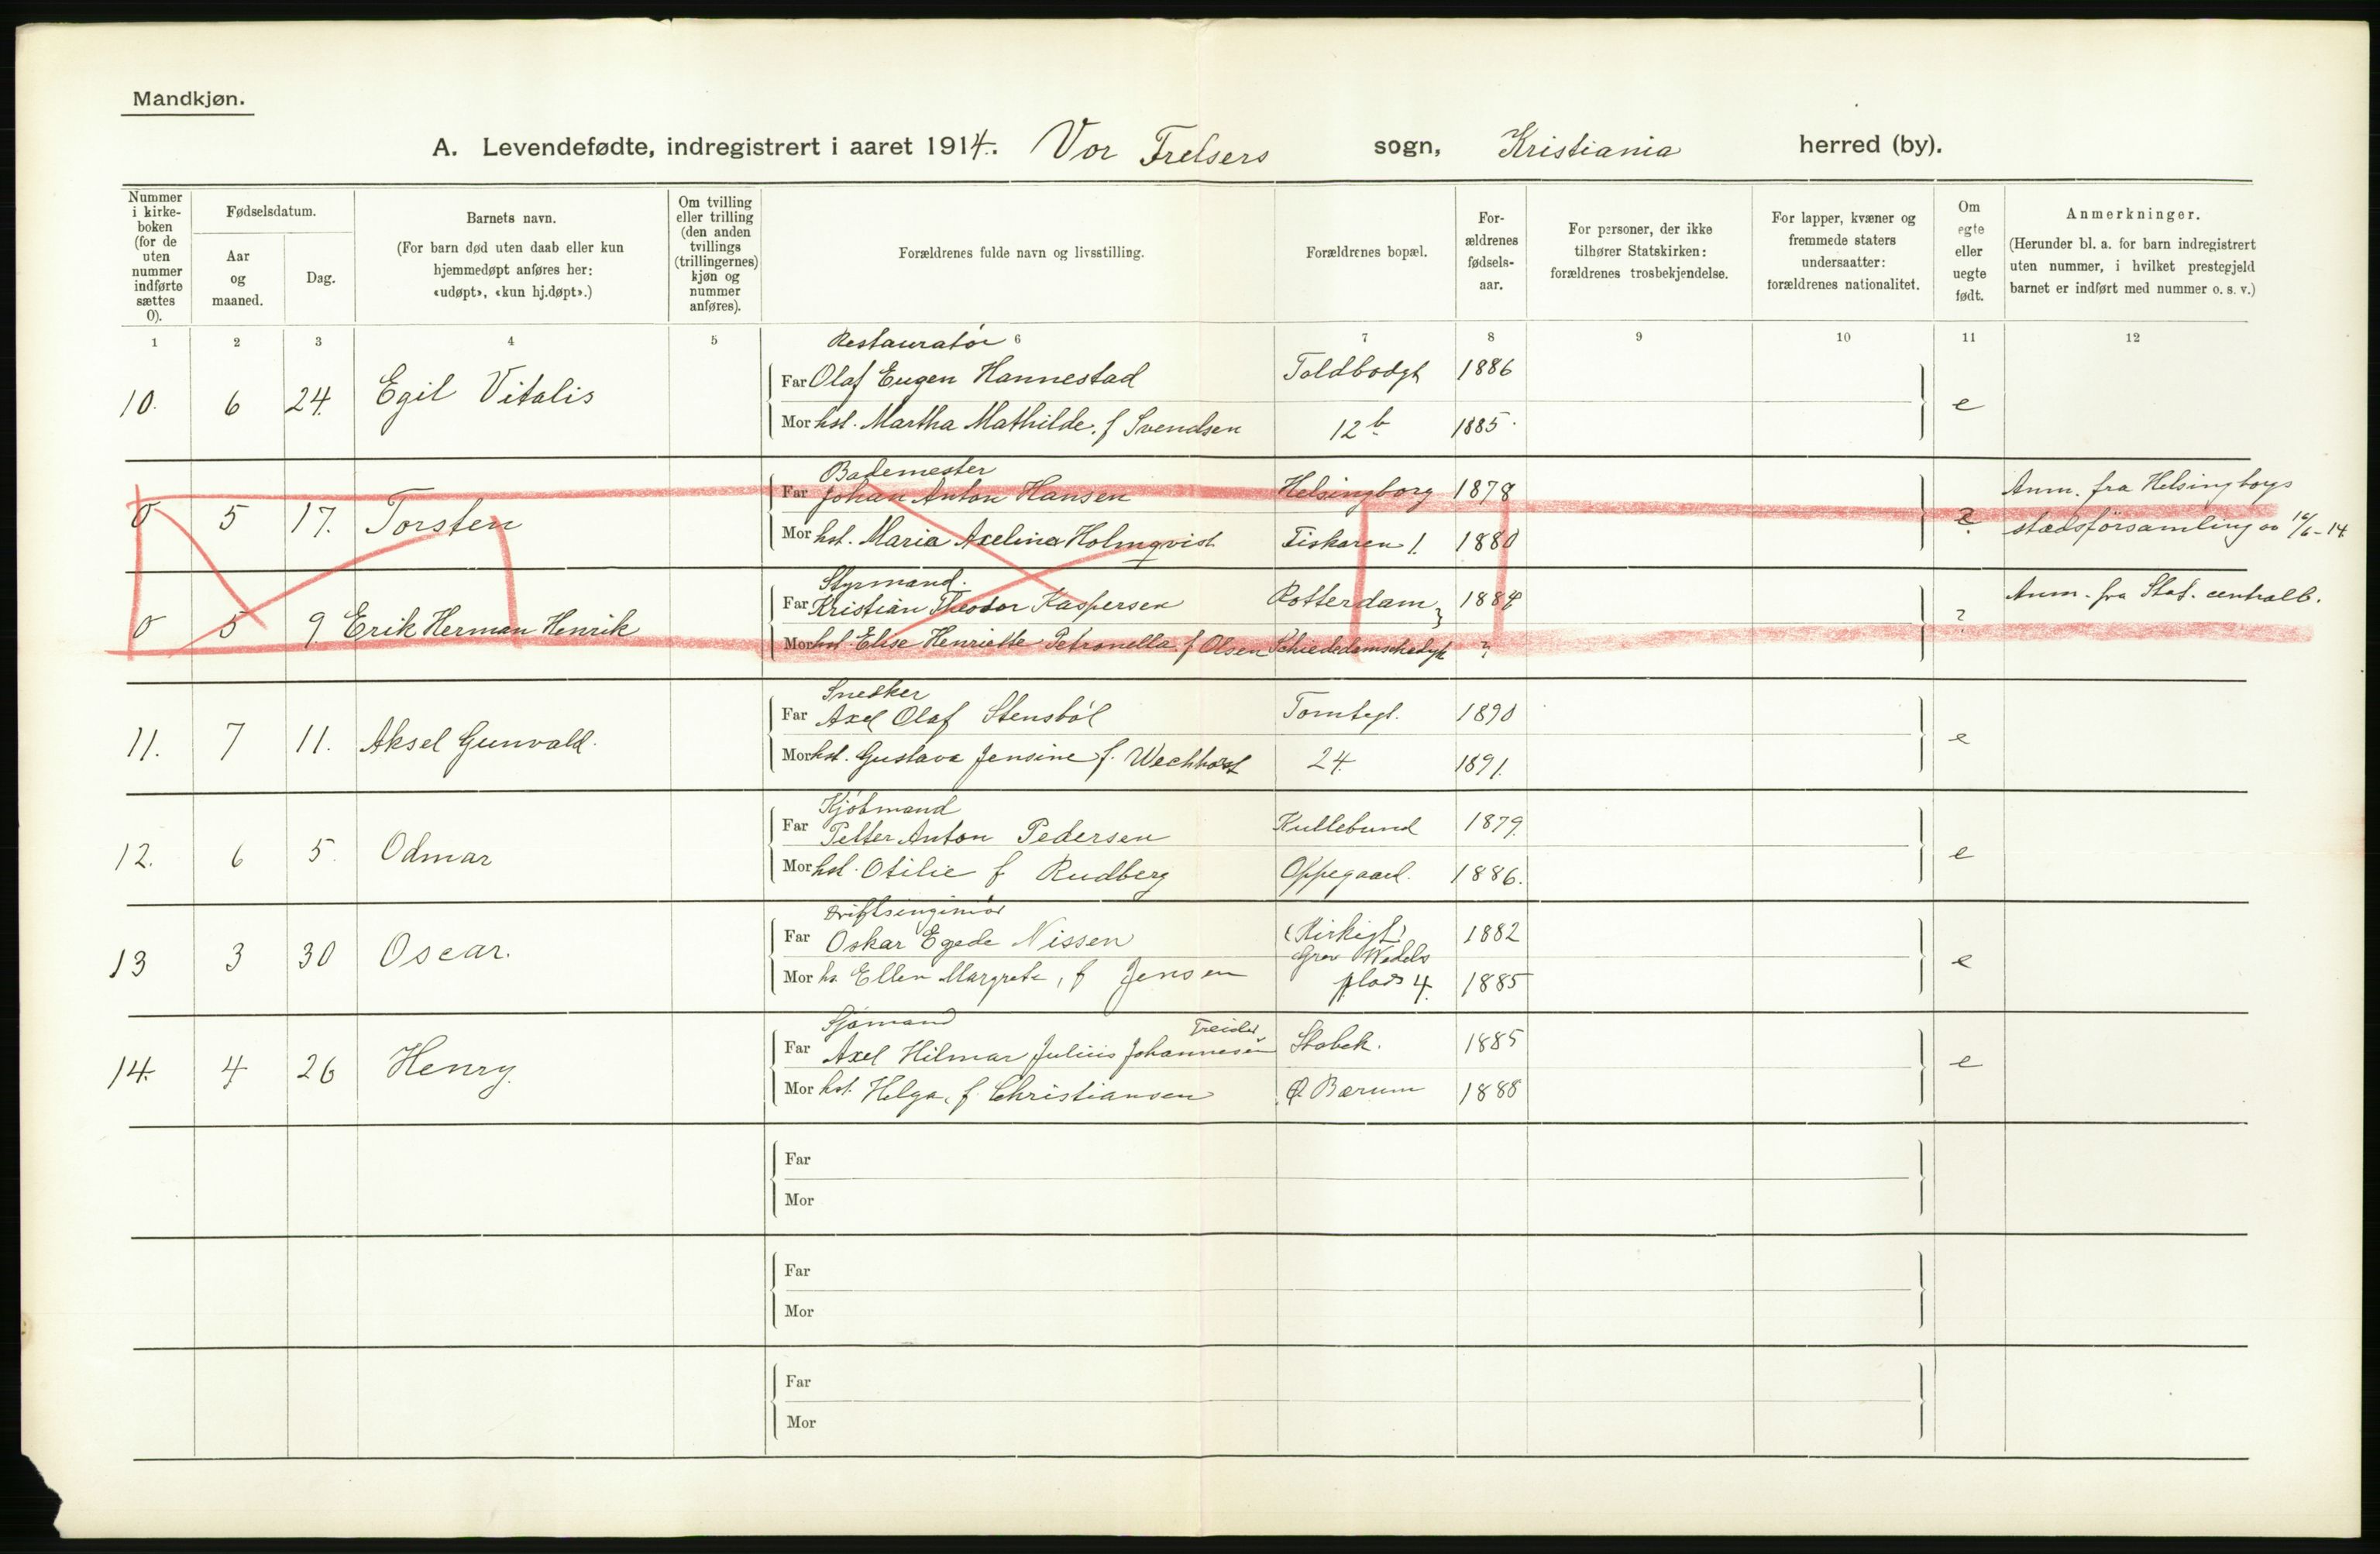 Mandkjøn.
A. Levendefødte, indregistrert i aaret 1914. Vor Frelsers sogn, Kristiania herred (by).
Nummer i kirke-boken (for de uten nummer indførte sættes 0).
Fødselsdatum.
Aar og maaned.
Dag.
Barnets navn.
(For barn død uten daab eller kun hjemmedøpt anføres her: «udøpt», «kun hj.døpt».)
Om tvilling eller trilling (den anden tvillings (trillingernes) kjøn og nummer anføres).
Forældrenes fulde navn og livsstilling.
Forældrenes bopæl.
For-ældrenes fødsels-aar.
For personer, der ikke tilhører Statskirken: forældrenes trosbekjendelse.
For lapper, kvæner og fremmede staters undersaatter: forældrenes nationalitet.
Om egte eller uegte født.
Anmerkninger.
(Herunder bl. a. for barn indregistrert uten nummer, i hvilket prestegjeld barnet er indført med nummer o. s. v.)
1 2 3 4 5 6 7 8 9 10 11 12
Restauratör
10. 6 24. Egil Vitalis Far Olaf Eugen Hannestad Toldbodgt 1886 e
Mor hst. Martha Mathilde. f Svendsen 12 b 1885.
Bademester
0 5 17. Torsten Far Johan Anton Hansen Helsingborg 1878 ? Anm. fra Helsingborgs
Mor hst. Maria Axelina Holmqvist Fiskaren 1. 1880 stadsförsamling av 16/6-14
Styrmand.
0 5 9. Erik Herman Henrik Far Kristian Theodor Kaspersen Rotterdam 1884 ? Anm. fra Stat. centralb.
Mor hst. Elise Henriette Petronella. f Olsen Schiededamschedyk ?
Snedker
11. 7 11. Aksel Gunvald. Far Axel Olaf Stensböl Tomtegt. 1890 e
Mor hst. Gustava Jensine f. Wechhorst 24. 1891.
Kjöbmand
12. 6 5. Odmar Far Petter Anton Pedersen Kullebund 1879. e
Mor hst. Otilie f Rudberg Oppegaard. 1886.
Driftsingeniör
13 3 30 Oscar. Far Oskar Egede Nissen (Kirkegt) 1882 e
Grev Wedels
Mor hs. Ellen Margrete, f Jensen plads 4. 1885
Sjömand
Treider
14. 4 26 Henry. Far Axel Hilmar Julius Johannesen Stabek. 1885 e
Mor hst. Helga, f Christiansen Ø Bærum 1888
Far
Mor
Far
Mor
Far
Mor